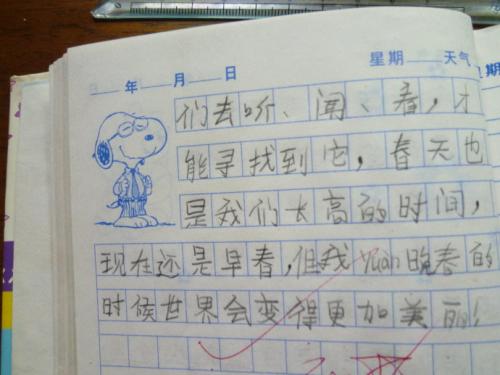 年 月 日 星期 天气
们去听、闻、看,才
能寻找到它,春天也
是我们长高的时间,
现在还是早春,但我yuan晚春的
时候世界会变得更加美丽!